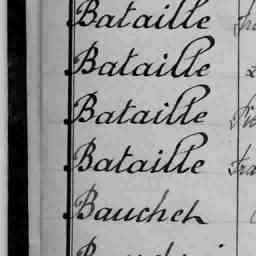 Bataille
Bataille
Bataille
Bataille
Bauchet